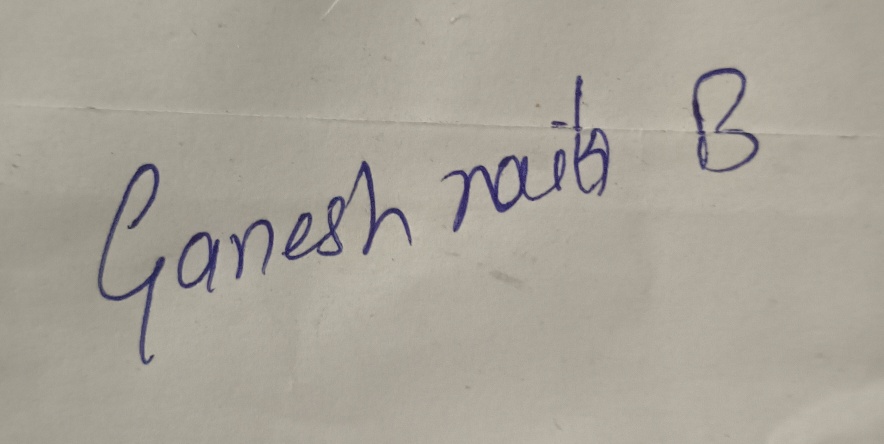 Ganesh naik B